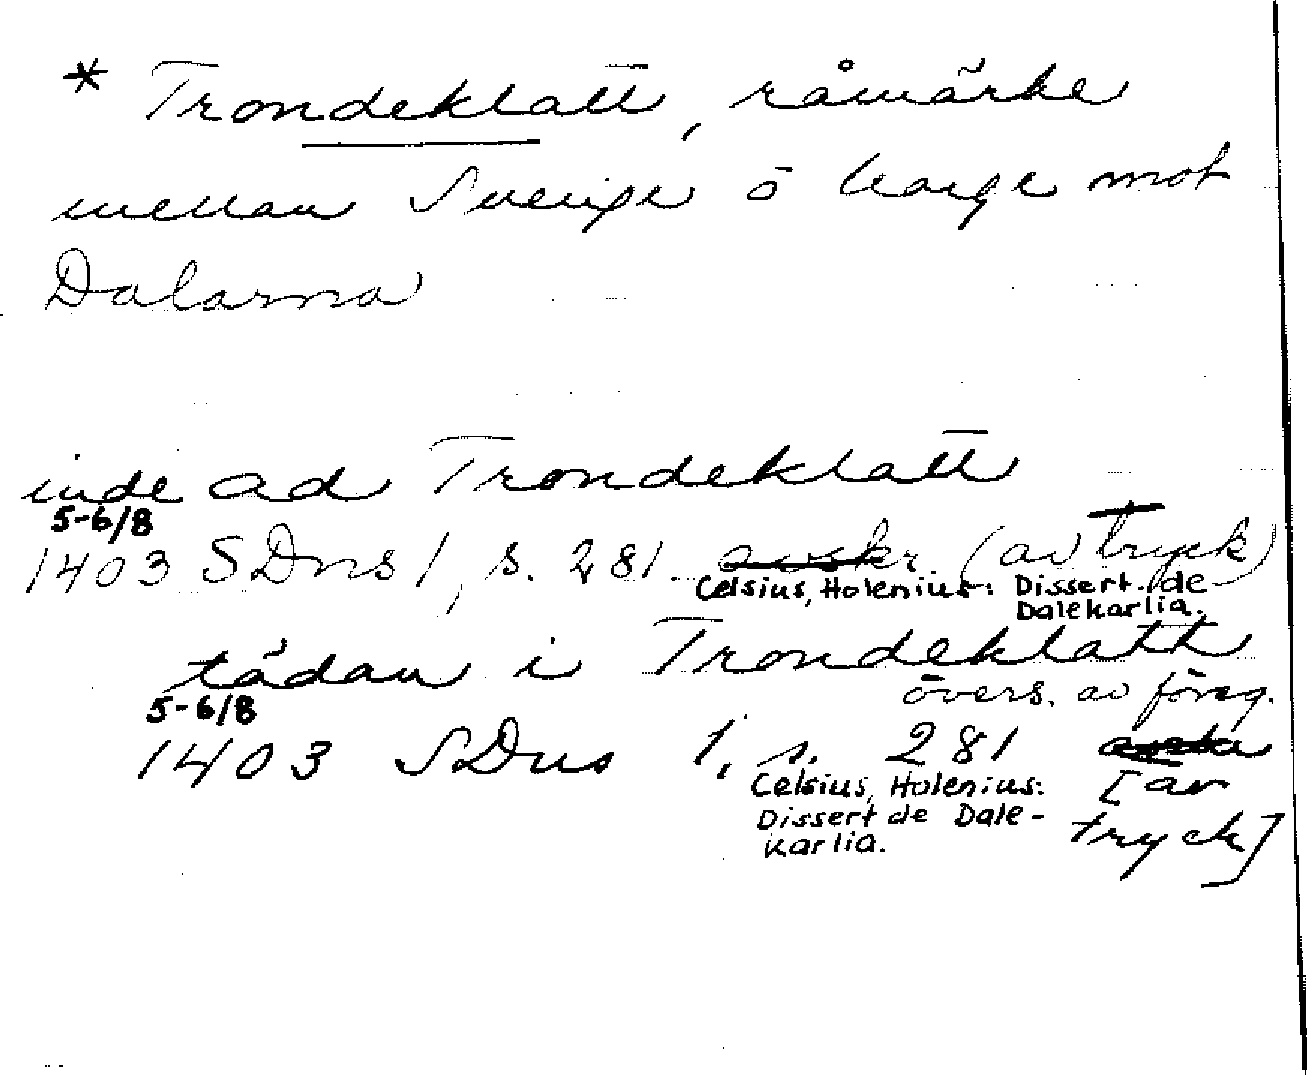 * Trondeklatt, råmärke
mellan Sverige o Norge mot
Dalarna
inde ad Trondeklatt
5-6/8
1403 SDns 1, s. 281 avskr. (av tryck)
Celsius, Holenius: Dissert. de
Dalekarlia.
tådan i Trondeklatt
övers. av föreg.
5-6/8
1403 SDns 1, s. 281
Celsius, Holenius: [av
Dissert de Dale- tryck]
karlia.